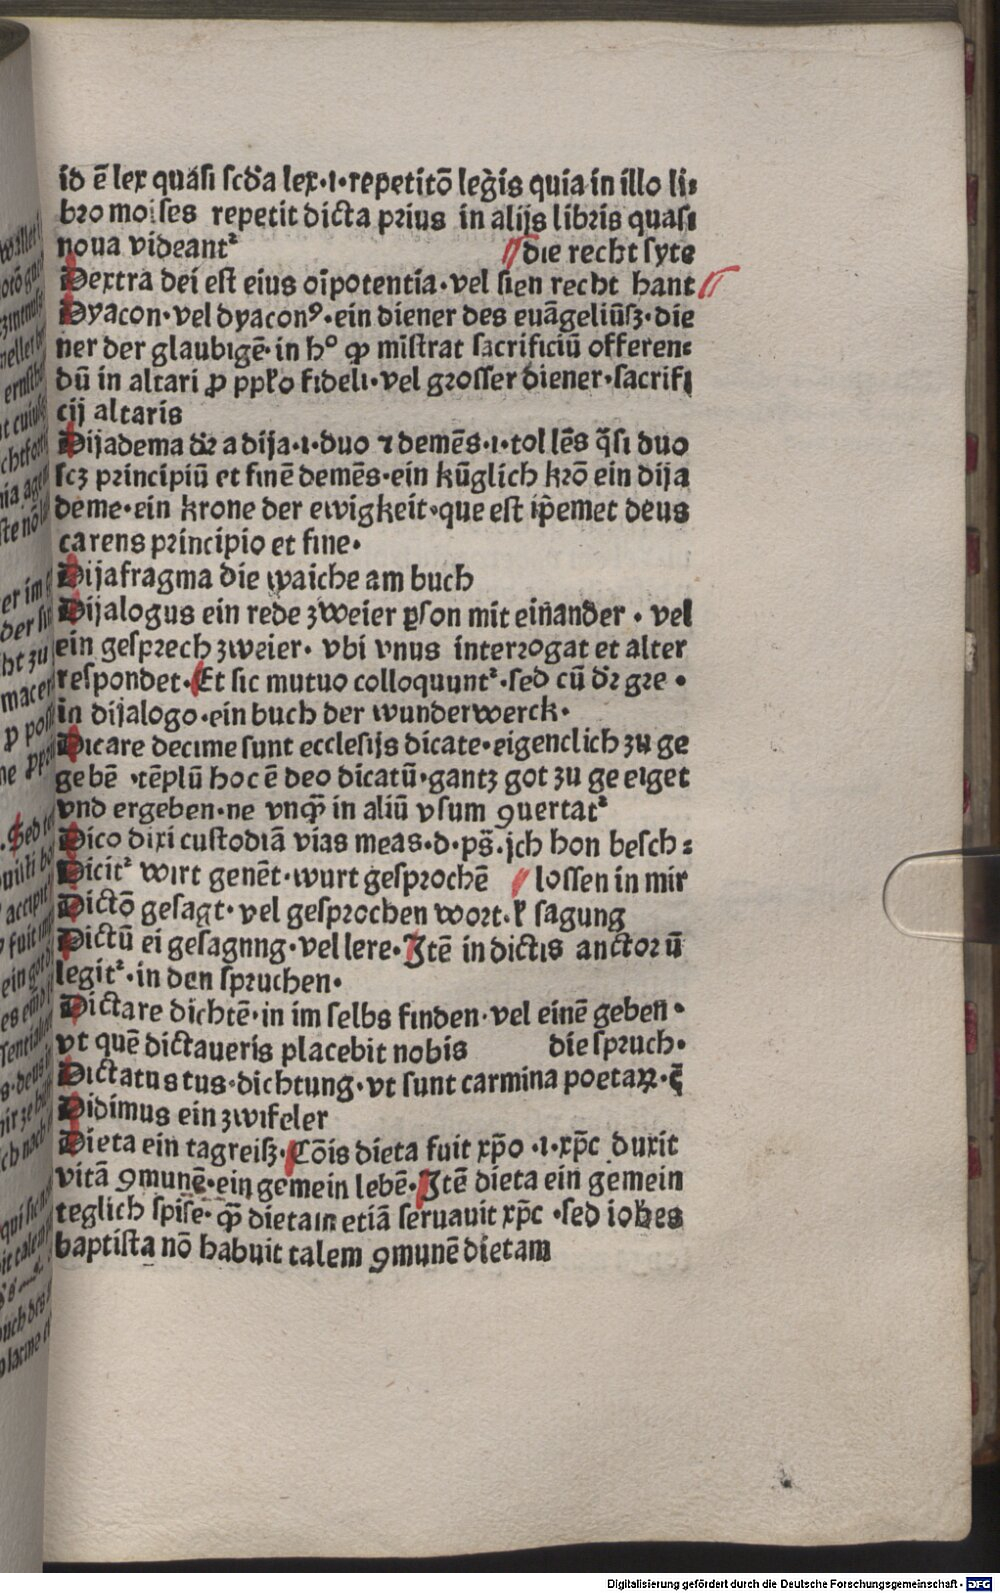 id ē lex quasi scd'a lex·i·repetitō legis quia in illo li⸗
bro moises repetit dicta prius in alijs libris quasi
noua videantᷣ die recht syte
Dextra dei est eius oīpotentia·vel sien recht hant
Dyacon·vel dyaconꝰ·ein diener des euāgeliūſʒ·die
ner der glaubigē·in h° ꝙ mīstrat sacrificiū offeren⸗
dū in altari ꝓ ppl̄o fideli·vel grosser diener·sacrifi
cij altaris
Dijadema dr̄ a dija·i·duo ⁊ demēs·i·tollēs q̄si duo
scʒ principiū et finē demēs·ein kūglich krō ein dija
deme·ein krone der ewigkeit·que est ip̄emet deus
carens principio et fine·
Dijafragma die waiche am buch
Dijalogus ein rede zweier ꝑson mit einander · vel
ein gesprech zweier· vbi vnus interrogat et alter
respondet·Et sic mutuo colloquuntᷣ·sed cū dr̄ gre ·
in dijalogo·ein buch der wunderwerck·
Dicare decime sunt ecclesijs dicate·eigenclich zu ge
gebē ·tēplū hoc ē deo dicatū·gantz got zu ge eiget
vnd ergeben·ne vnqꝫ̄ in aliū vsum ꝯuertatᷣ
Dico dixi custodiā vias meas·d·ps̄·jch hon besch⸗
Dicitᷣ wirt genēt·wurt gesprochē lossen in mir
Dictō gesagt·vel gesprochen wort·ł sagung
Dictū ei gesagnng·vel lere·Jtē in dictis anctorū
legitᷣ·in den spruchen·
Dictare dichtē·in im selbs finden·vel einē geben·
vt quē dictaueris placebit nobis die spruch·
Dictatus tus·dichtung·vt sunt carmina poetaꝝ·ꝯ̄
Didimus ein zwifeler
Dieta ein tagreiſʒ·Cōis dieta fuit xp̄o ·i·xp̄c duxit
vitā ꝯmunē·ein gemein lebē·Jtē dieta ein gemein
teglich spise·ꝙ̄ dietam etiā seruauit xp̄c ·sed iohes
baptista nō habuit talem ꝯmunē dietam
Digitalisierung gefördert durch die Deutsche Forschungsgemeinschaft · DFG